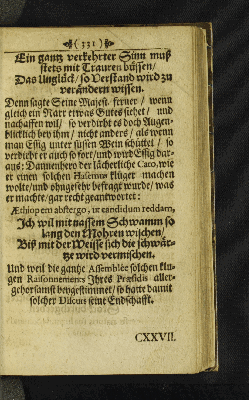 ( 331 )
Ein gantz verkehrter Sinn muß
stets mit Trauren büssen/
Das Unglück/ so Verstand wird zu
verändern wissen.
Denn sagte Seine Majest. ferner/ wenn
gleich ein Narr etwas Gutes siehet/ und
nachaffen wil/ so verdirbt es doch Augen-
blicklich bey ihm/ nicht anders/ als wenn
man Essig unter süssen Wein schüttet/ so
verdirbt er auch so fort/ und wird Essig dar-
aus: Dannenhero der lächerliche Cato, wie
er einen solchen Hasenum klüger machen
wolte/ und ohngefehr befragt wurde/ was
er machte/ gar recht geantwortet:
Æthiopem abstergo, ut candidum reddam,
Ich wil mit nassem Schwamm so
lang den Mohren wischen/
Biß mit der Weisse sich die schwär-
tze wird vermischen.
Und weil die gantze Assemblée solchen klu-
gen Raisonnements Ihres Præsidis aller-
gehorsamst beygestimmet/ so hatte damit
solcher Discurs seine Endschafft.
CXXVII.